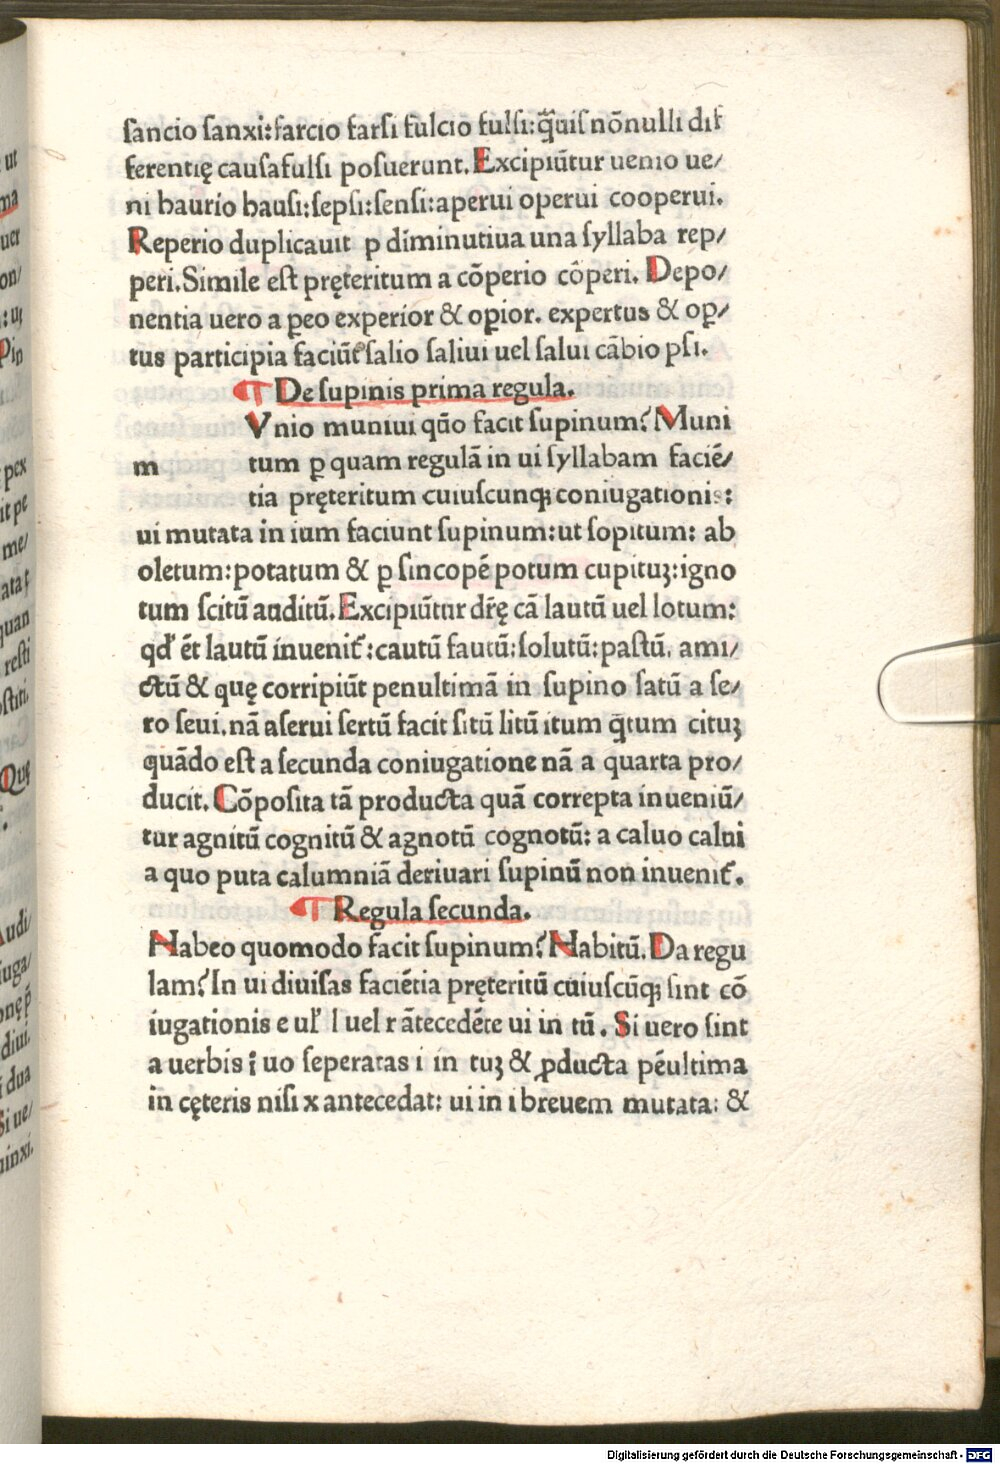 sancio sanxi:farcio farsi fulcio fulsi:q̃uis nõnulli dif
ferentię causa fulsi posuerunt. Excipiũtur uenio ue/
ni haurio hausi:sepsi:sensi:aperui operui cooperui.
Reperio duplicauit p diminutiua una syllaba rep/
peri. Simile est pręteritum a cõperio cõperi. Depo/
nentia uero a ꝑeo experior & opior. expertus & oꝑ/
tus participia faciũt salio saliui uel salui cãbio psi.
¶ De supinis prima regula.
Vnio muniui qũo facit supinum? Muni
m tum ꝑ quam regulã in ui syllabam faciẽ/
tia pręteritum cuiuscunqꝫ coniugationis:
ui mutata in ium faciunt supinum:ut sopitum: ab
oletum:potatum & ꝑ sincopẽ potum cupituꝫ:igno
tum scitũ auditũ. Excipiũtur dr̃ę cã lautũ uel lotum:
qđ ẽt lautũ inuenit̃:cautũ fautũ:solutũ:pastũ. ami/
ctũ & quę corripiũt penultimã in supino satũ a se/
ro seui. nã a serui sertũ facit sitũ litũ itum q̃tum cituꝫ
quãdo est a secunda coniugatione nã a quarta pro/
ducit. Cõposita tã producta quã correpta inueniũ/
tur agnitũ cognitũ & agnotũ cognotũ: a caluo calui
a quo puta calumniã deriuari supinũ non inuenit̃.
¶ Regula secunda.
Habeo quomodo facit supinum? Habitũ. Da regu
lam? In ui diuisas faciẽtia pręteritũ cuiuscũqꝫ sint cõ
iugationis e ul̃ l uel r ãtecedẽte ui in tũ. Si uero sint
a uerbis ĩ uo seperatas i in tuꝫ & ꝓducta pẽultima
in cęteris nisi x antecedat: ui in i breuem mutata: &
Digitalisierung gefördert durch die Deutsche Forschungsgemeinschaft - DFG